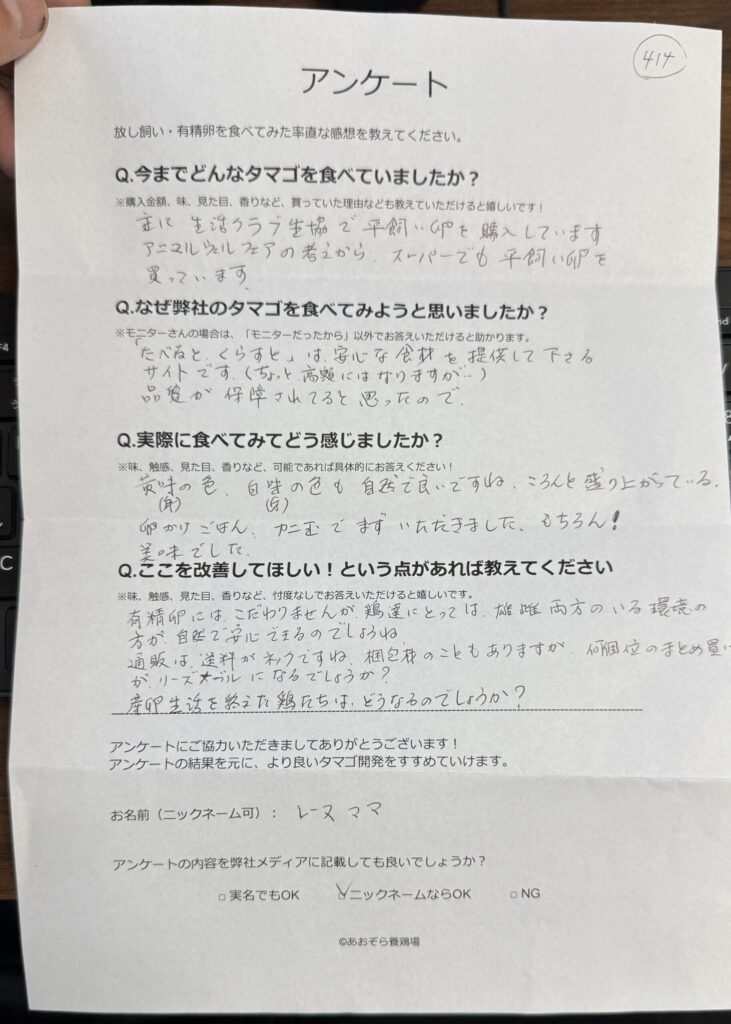 414
アンケート
放し飼い・有精卵を食べてみた率直な感想を教えてください。
Q.今までどんなタマゴを食べていましたか？
※購入金額、味、見た目、香りなど、買っていた理由なども教えていただけると嬉しいです！
主に 生活クラブ生協で 平飼い卵を購入しています
アニマルウェルフェアの考えから、スーパーでも 平飼い卵を
買っています
Q.なぜ弊社のタマゴを食べてみようと思いましたか？
※モニターさんの場合は、「モニターだったから」以外でお答えいただけると助かります。
「たべると、くらすと」は、安心な食材を提供して下さる
サイトです、(ちょっと、高額にはなりますが…)
品質が 保障されてると思ったので、
Q.実際に食べてみてどう感じましたか？
※味、触感、見た目、香りなど、可能であれば具体的にお答えください！
黄味の色、白味の色も 自然で良いですね、ころんと盛り上がっている、
(身) (身)
卵かけごはん、カニ玉で まず いただきました、もちろん！
美味でした、
Q.ここを改善してほしい！という点があれば教えてください
※味、触感、見た目、香りなど、忖度なしでお答えいただけると嬉しいです。
有精卵には、こだわりませんが、鶏達にとっては、雄雌両方のいる環境の
方が、自然で安心できるのでしょうね、
通販は、送料がネックですね、梱包材のこともありますが、何個位のまとめ買い
が、リーズナブルになるでしょうか？
産卵生活を終えた鶏たちは、どうなるのでしょうか？
アンケートにご協力いただきましてありがとうございます！
アンケートの結果を元に、より良いタマゴ開発をすすめていけます。
お名前（ニックネーム可）： レーヌママ
アンケートの内容を弊社メディアに記載しても良いでしょうか？
□ 実名でもOK ☑ニックネームならOK □ NG
©あおぞら養鶏場